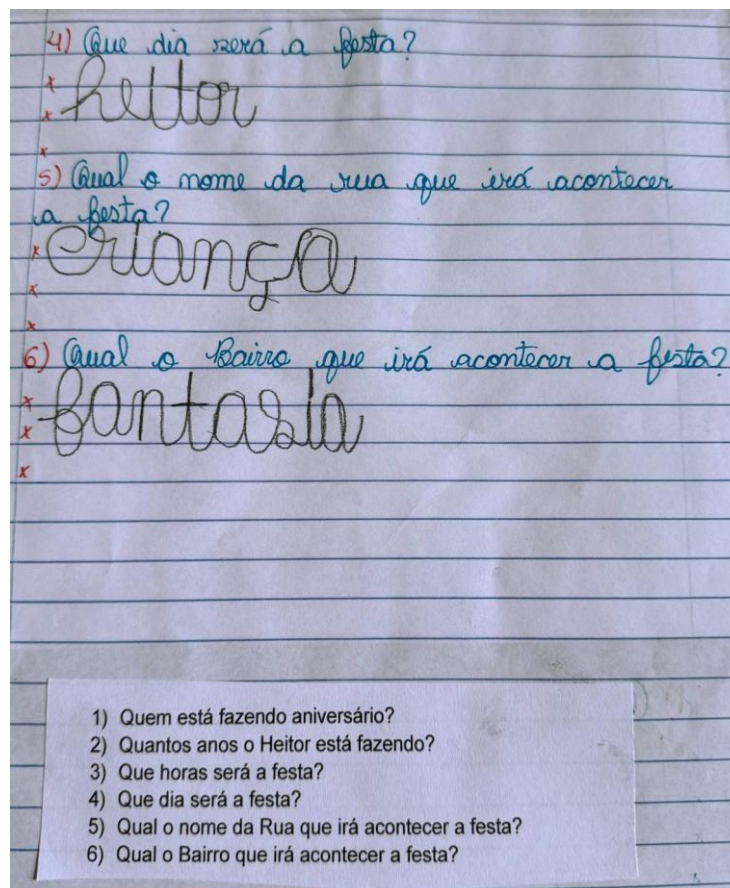 4) Que dia será a festa?
heitor
5) Qual o nome da rua que irá acontecer
a festa?
criança
6) Qual o Bairro que irá acontecer a festa?
fantasia
1) Quem está fazendo aniversário?
2) Quantos anos o Heitor está fazendo?
3) Que horas será a festa?
4) Que dia será a festa?
5) Qual o nome da Rua que irá acontecer a festa?
6) Qual o Bairro que irá acontecer a festa?